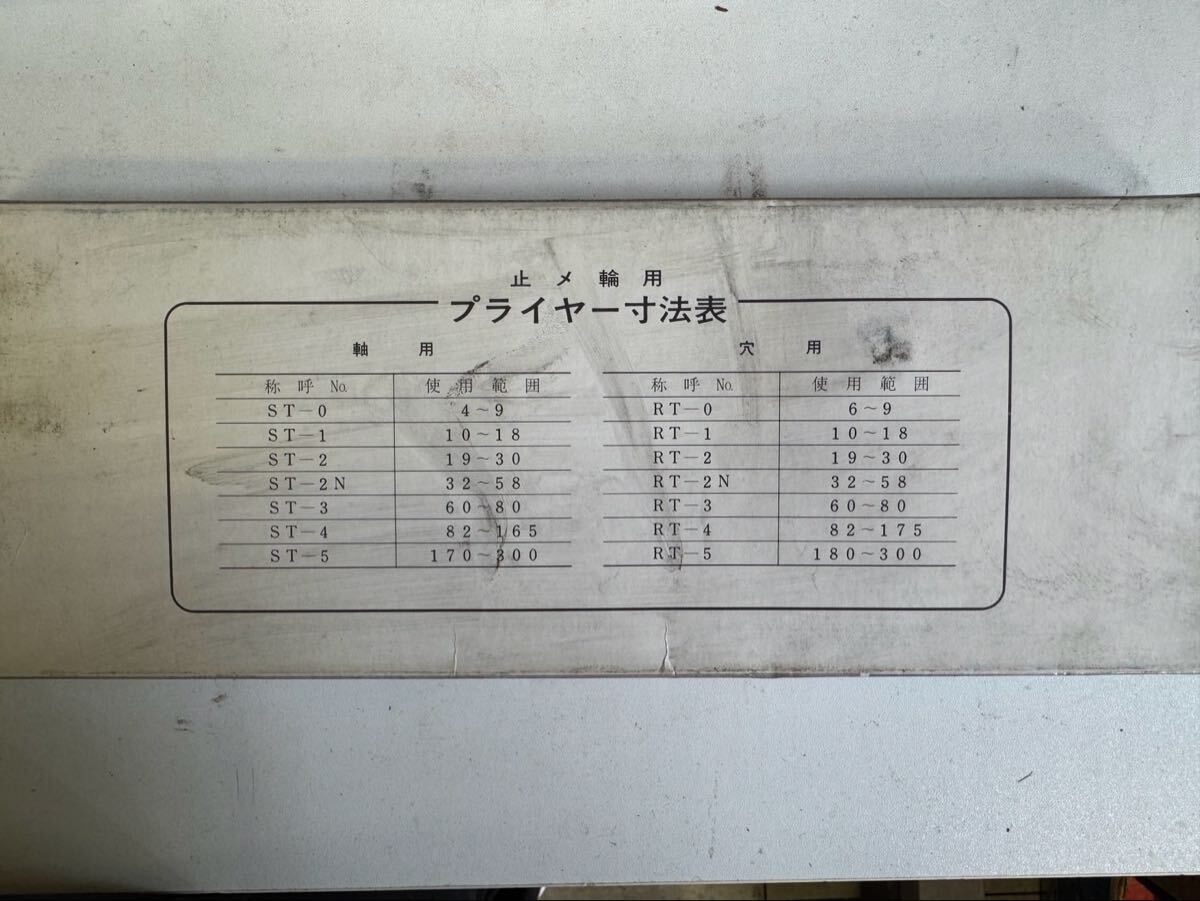 止メ輪用
プライヤー寸法表
軸用 穴用
称呼No. 使用範囲 称呼No. 使用範囲
ST－0 4～9 RT－0 6～9
ST－1 10～18 RT－1 10～18
ST－2 19～30 RT－2 19～30
ST－2N 32～58 RT－2N 32～58
ST－3 60～80 RT－3 60～80
ST－4 82～165 RT－4 82～175
ST－5 170～300 RT－5 180～300